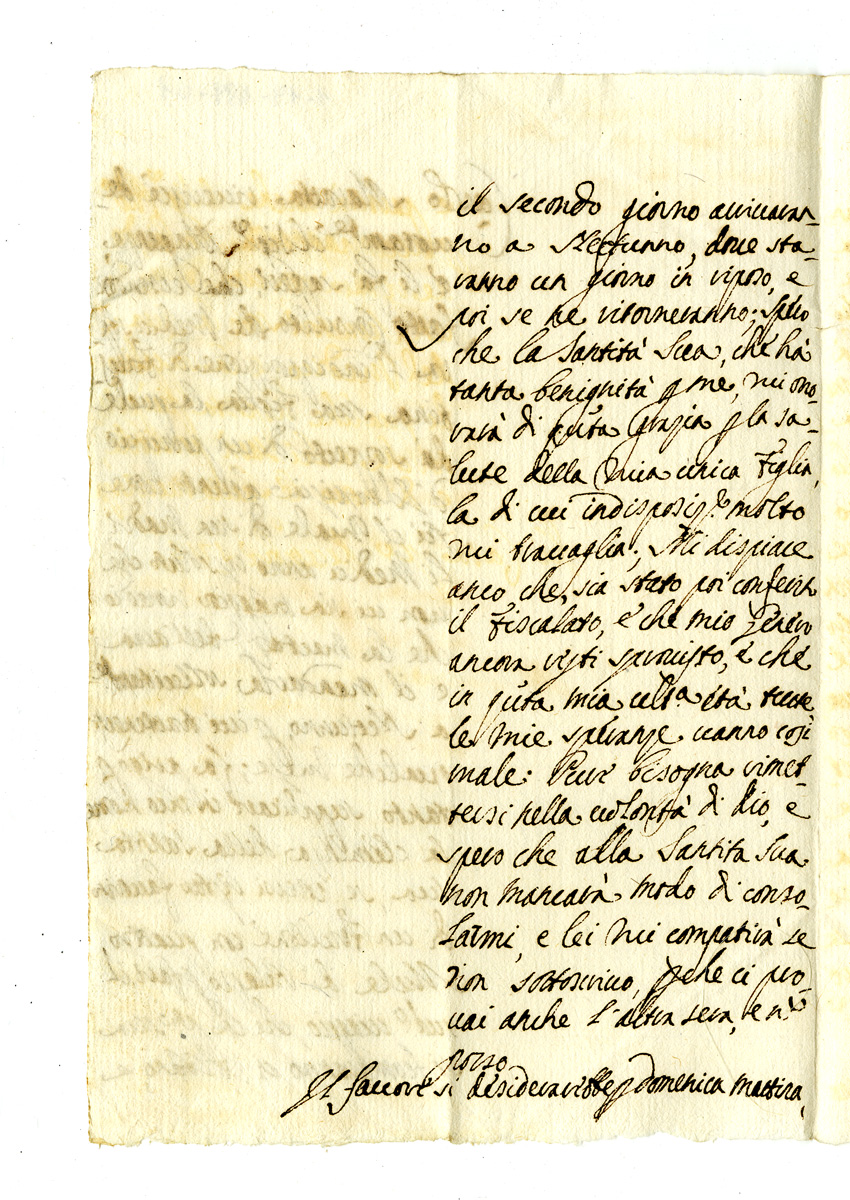 il secondo giorno arrivaran-
no a Nettunno, doue sta-
ranno un giorno in riposo, e
poi se ne ritorneranno; spero
che la Santità Sua, che hà
tanta benignità p me, mi ono-
rarà di q̃sta grazia p la sa-
lute della mia unica figlia,
la di cui indisposiz.e molto
mi trauaglia; Mi dispiace
anco che sia stato poi conferito
il Fiscalato, e che mio Genero
ancora resti sprouisto, e che
in q̃sta mia ult.a età tutte
le mie speranze uanno così
male: Pure bisogna rimet-
tersi nella uolontà di dio, e
spero che alla Santità Sua
non mancarà modo di conso-
larmi, e lei mi compatirà se
non sottoscriuo, p̃che ci pro-
uai anche l'altra sera, e n.
posso
Il fauore si desiderarebbe p domenica mattina,